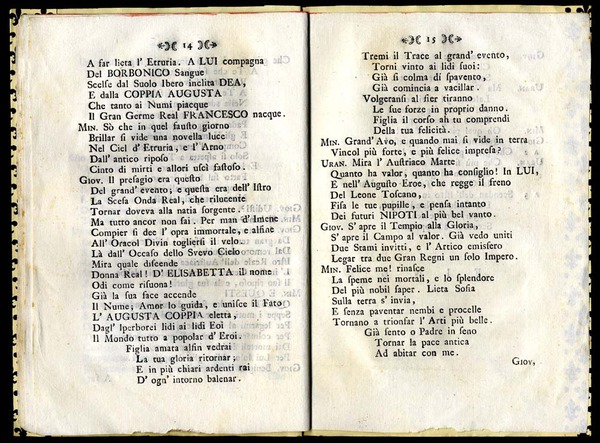 14
A far lieta l' Etruria. A LUI compagna
Del BORBONICO Sangue
Scelse dal Suolo Ibero inclita DEA,
E dalla COPPIA AUGUSTA
Che tanto ai Numi piacque
Il Gran Germe Real FRANCESCO nacque.
MIN. Sò che in quel fausto giorno
Brillar si vide una novella luce
Nel Ciel d' Etruria, e l' Arno
Dall' antico riposo
Cinto di mirti e allori uscì fastoso.
GIOV. Il presagio era questo
Del grand' evento; e questa era dell' Istro
La Scesa Onda Real, che rilucente
Tornar doveva alla natia sorgente.
Ma tutto ancor non sai. Per man d' Imene
Compier si dee l' opra immortale, e alfine
All' Oracol Divin togliersi il velo.
Là dall' Occaso dello Svevo Cielo
Mira quale discende
Donna Real! D' ELISABETTA il nome
Odi come risuona!
Già la sua face accende
Il Nume; Amor lo guida, e unisce il Fato
L' AUGUSTA COPPIA eletta,
Dagl' Iperborei lidi ai lidi Eoi
Il Mondo tutto a popolar d' Eroi.
Figlia amata alfin vedrai
La tua gloria ritornar;
E in più chiari ardenti rai
D' ogn' intorno balenar.
15
Tremi il Trace al grand' evento,
Torni vinto ai lidi suoi:
Già si colma di spavento,
Già comincia a vacillar.
Volgeransi al fier tiranno
Le sue forze in proprio danno.
Figlia il corso ah tu comprendi
Della tua felicità.
MIN. Grand' Avo, e quando mai si vide in terra
Vincol più forte, e più felice impresa?
URAN. Mira l' Austriaco Marte
Quanto ha valor, quanto ha consiglio! In LUI,
E nell' Augusto Eroe, che regge il freno
Del Leone Toscano,
Fisa le tue pupille, e pensa intanto
Dei futuri NIPOTI al più bel vanto.
GIOV. S' apre il Tempio alla Gloria,
S' apre il Campo al valor. Già vedo uniti
Due Stami invitti, e l' Artico emisfero
Legar tra due Gran Regni un solo Impero.
MIN. Felice me! rinasce
La speme nei mortali, e lo splendore
Del più nobil saper. Lieta Sofia
Sulla terra s' invia,
E senza paventar nembi e procelle
Tornano a trionfar l' Arti più belle.
Già sento o Padre in seno
Tornar la pace antica
Ad abitar con me.
GIOV,